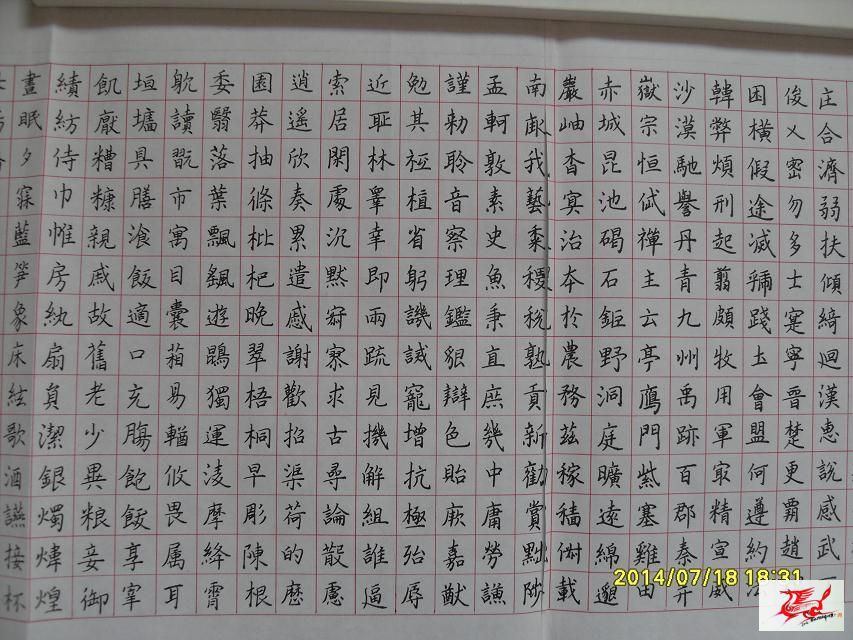 庄合濟弱扶傾綺迴漢惠說感武
俊乂密勿多士寔寧晉楚更霸趙
困橫假途滅虢踐土會盟何遵約法
韓弊煩刑起翦頗牧用軍冣精宣威
沙漠馳譽丹青九州禹跡百郡秦并
嶽宗恒岱禪主云亭鴈門紫塞雞田
赤城昆池碣石鉅野洞庭曠遠綿邈
巖岫杳冥治本於農務茲稼穡俶載
南畝我藝黍稷稅熟貢新勸賞黜陟
孟軻敦素史魚秉直庶幾中庸勞謙
謹勑聆音察理鑑貌辯色貽厥嘉猷
勉其祗植省躬譏誡寵增抗極殆辱
近恥林皋幸即兩疏見機解組誰逼
索居閑處沉默寂寥求古尋論散慮
逍遙欣奏累遣慼謝歡招渠荷的歷
園莽抽條枇杷晚翠梧桐早彫陳根
委翳落葉飄颻遊鵾獨運凌摩絳霄
耽讀翫市寓目囊箱易輶攸畏属耳
垣墻具膳飡飯適口充腸飽飫享宰
飢厭糟糠親戚故舊老少異粮妾御
績紡侍巾帷房紈扇員潔銀燭煒煌
晝眠夕寐藍笋象床絃歌酒讌接杯
2014/07/18 18:31